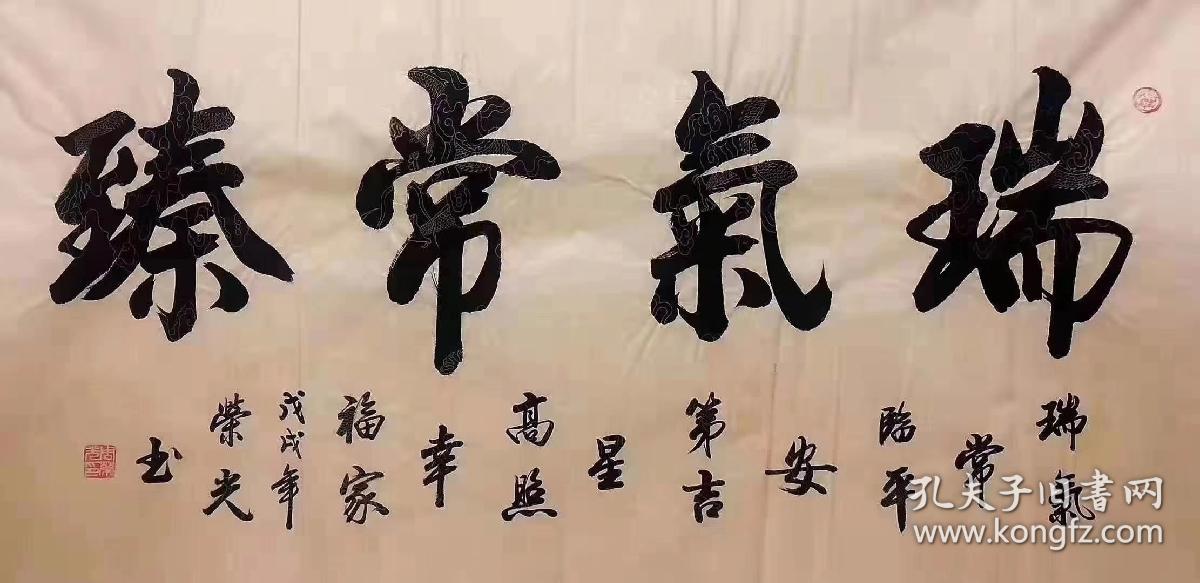 瑞氣常臻
瑞氣
常
臨平
安
第吉
星
高照
幸
福家
戊戌年
榮光
书
孔夫子旧書网
www.kongfz.com